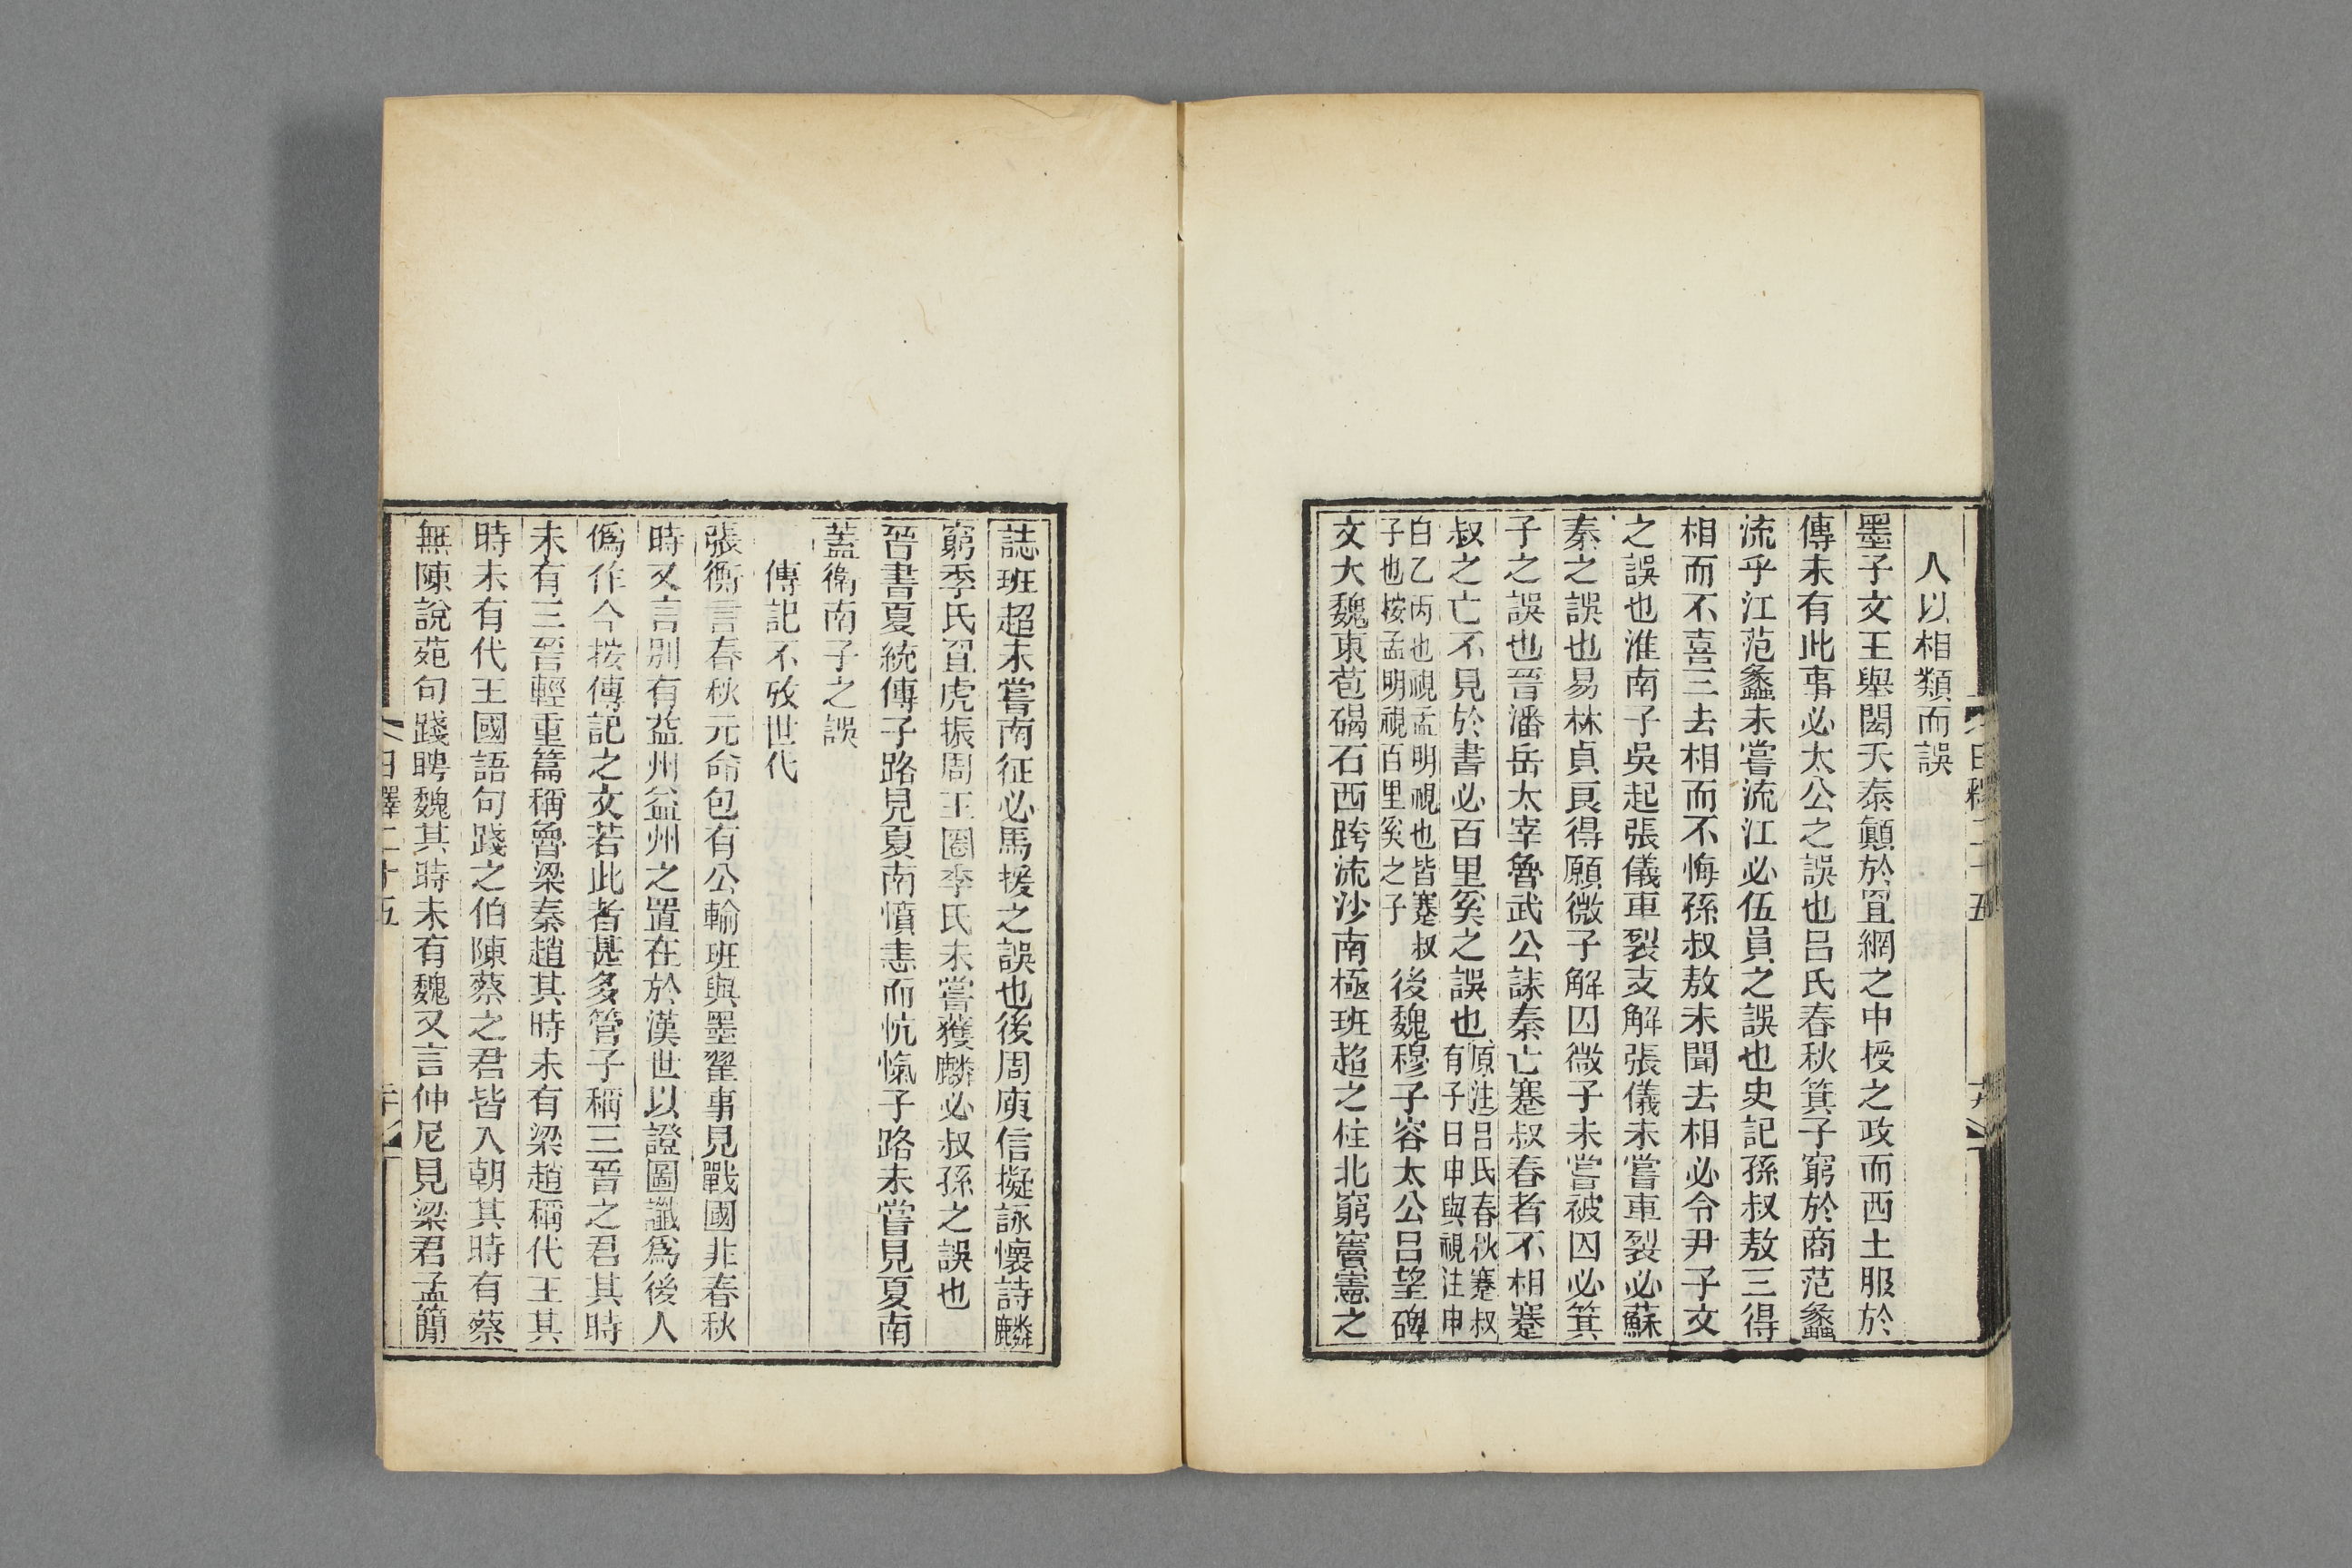 人以相類而誤
墨子文王舉閎夭泰顚於罝網之中授之政而西土服於
傳未有此事必太公之誤也呂氏春秋箕子窮於商范蠡
流乎江范蠡未嘗流江必伍員之誤也史記孫叔敖三得
相而不喜三去相而不悔孫叔敖未聞去相必令尹子文
之誤也淮南子吳起張儀車裂支解張儀未嘗車裂必蘇
秦之誤也易林貞良得願微子解囚微子未嘗被囚必箕
子之誤也晉潘岳太宰魯武公誄秦亡蹇叔舂者不相蹇
叔之亡不見於書必百里奚之誤也原注呂氏春秋蹇叔
有子曰申與視注申
白乙丙也視孟明視也皆蹇叔
子也按孟明視百里奚之子
後魏穆子容太公呂望碑
文大魏東苞碣石西跨流沙南極班超之柱北窮竇憲之
誌班超未嘗南征必馬援之誤也後周庾信擬詠懷詩麟
窮季氏罝虎振周王圈季氏未嘗獲麟必叔孫之誤也
晉書夏統傳子路見夏南憤恚而忼愾子路未嘗見夏南
蓋衛南子之誤
傳記不攷世代
張衡言春秋元命包有公輸班與墨翟事見戰國非春秋
時又言別有益州益州之置在於漢世以證圖讖爲後人
僞作今按傳記之文若此者甚多管子稱三晉之君其時
未有三晉輕重篇稱魯梁秦趙其時未有梁趙稱代王其
時未有代王國語句踐之伯陳蔡之君皆入朝其時有蔡
無陳說苑句踐聘魏其時未有魏又言仲尼見梁君孟簡
日釋二十五